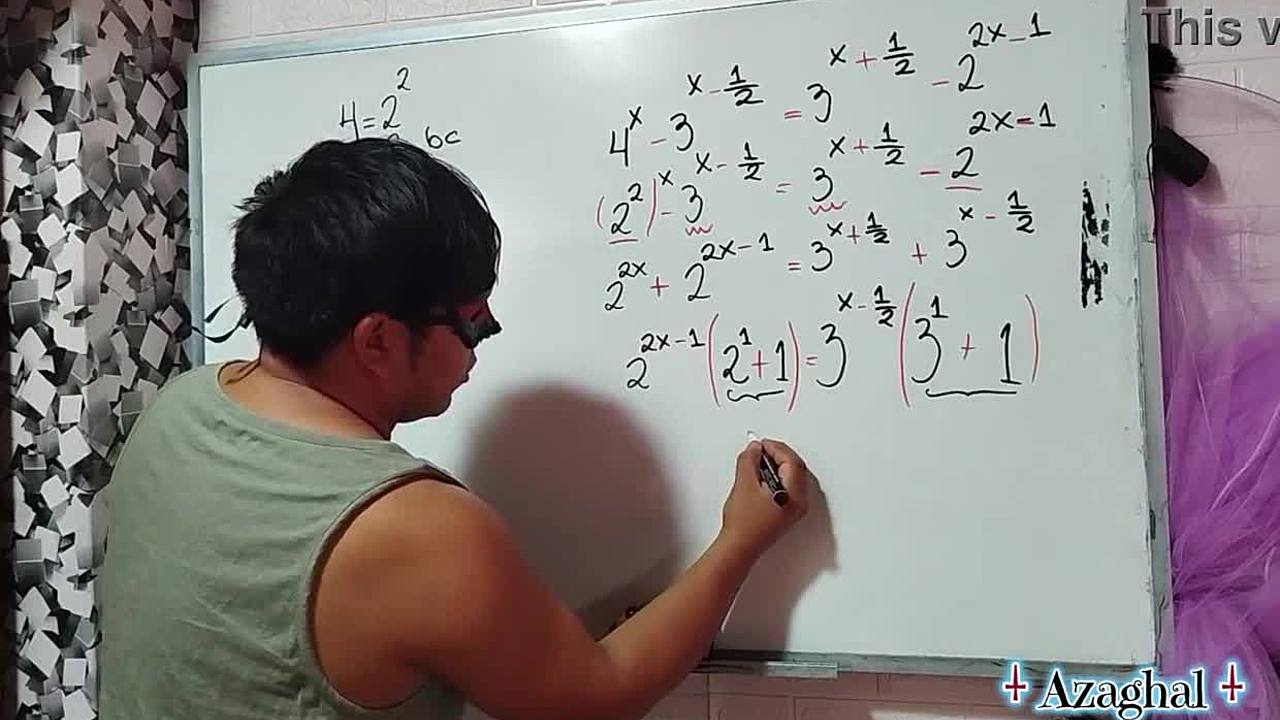 This v
4=2²
bc
4^x - 3^(x - 1/2) = 3^(x + 1/2) - 2^(2x - 1)
(2²)^x - 3^(x - 1/2) = 3^(x + 1/2) - 2^(2x - 1)
2^(2x) + 2^(2x - 1) = 3^(x + 1/2) + 3^(x - 1/2)
2^(2x - 1) (2¹ + 1) = 3^(x - 1/2) (3¹ + 1)
Azaghal